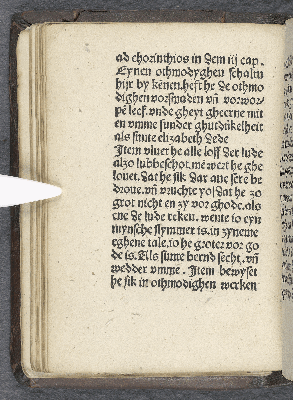 ad chorinthios in dem iij cap.
Eynen othmodyghen schalm
hijr by kēnen. heft he de othmo
dighen vorsmaden vñ vorwor-
pē leef. vnde gheyt gheerne mit
en vmme sunder ghutdūkelheit
als sunte elizabeth dede
Item vluet he alle loff der lude
alzo lubbeschot. mē wert he ghe
louet. dat he sik dar ane sere be
droue. vñ vruchte yo/ dat he zo
grot nicht en zy vor ghode. als
ene de lude reken. wente io eyn
mynsche slymmer is. in zyneme
eghene tale. io he groter vor go
de is. Als sunte bernd secht. vñ
wedder vmme. Item bewyset
he sik in othmodighen werken